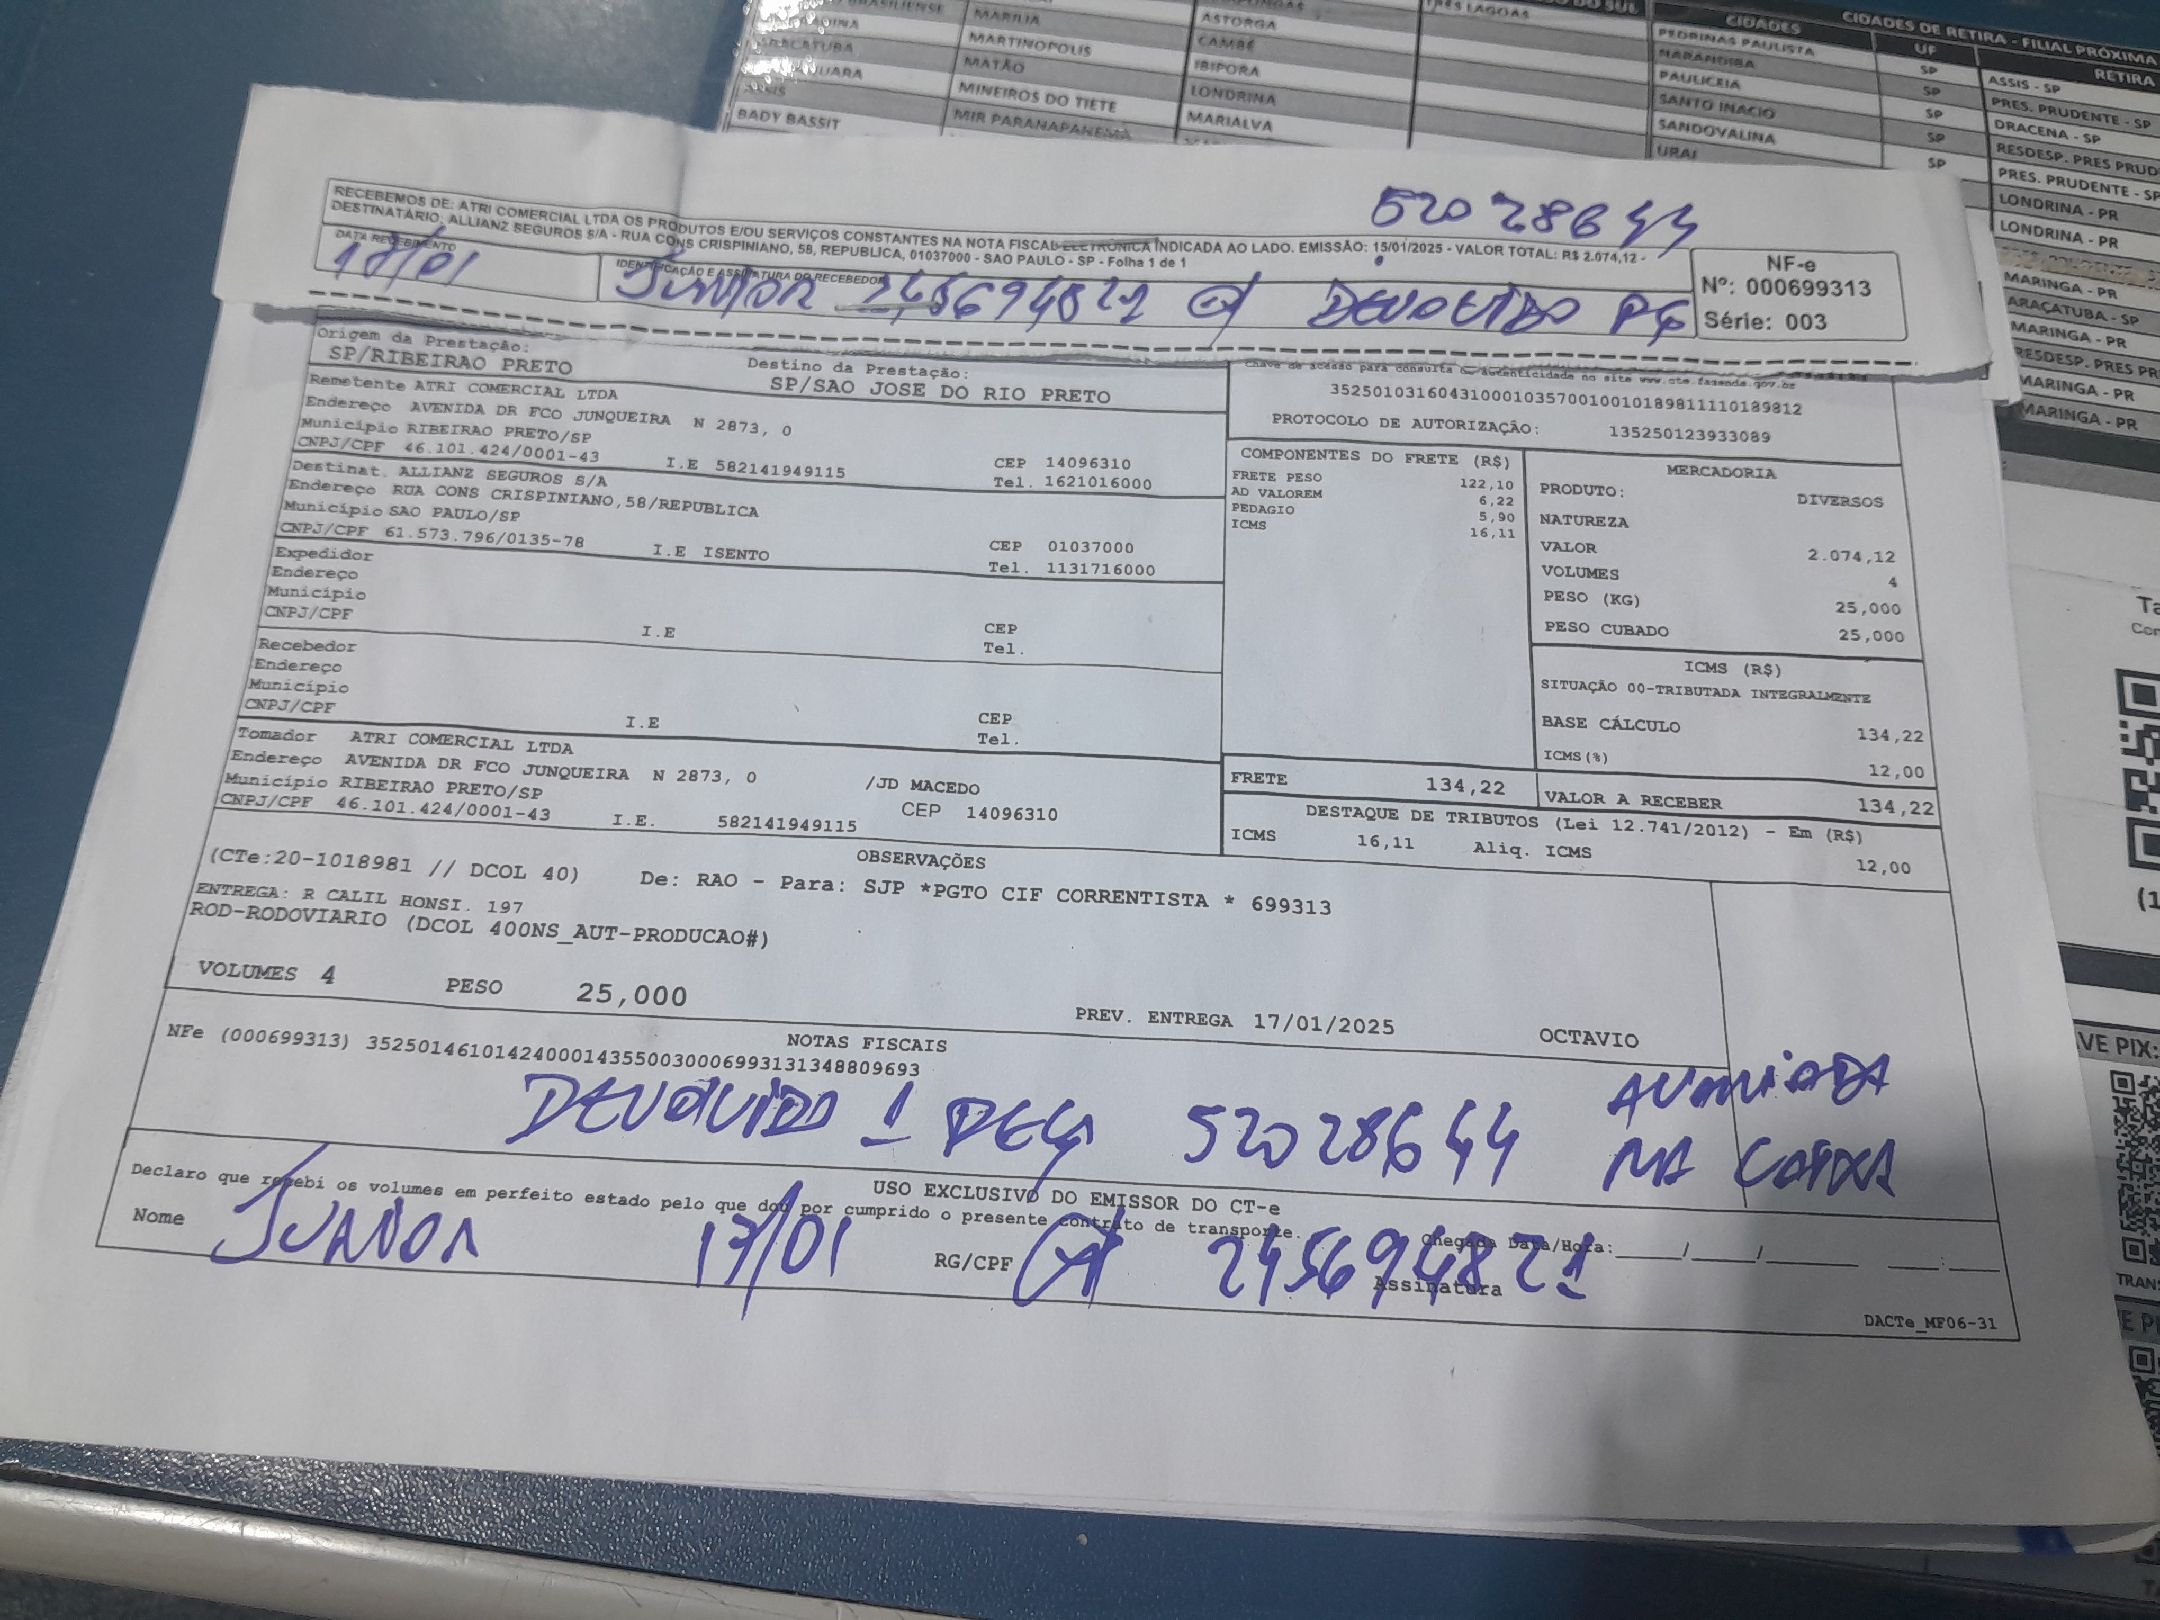 BRASILIENSE
MARILIA
ASTORGA
TRES LAGOAS
DO SUL
CIDADES
CIDADES DE RETIRA - FILIAL PRÓXIMA
MARTINOPOLIS
CAMBÉ
PEDRINAS PAULISTA
UF
RETIRA
ARACATUBA
MATÃO
IBIPORA
NARANDIBA
SP
ASSIS - SP
MINEIROS DO TIETE
LONDRINA
PAULICEIA
SP
PRES. PRUDENTE - SP
BADY BASSIT
MIR PARANAPANEMA
MARIALVA
SANTO INACIO
SP
DRACENA - SP
SANDOVALINA
SP
RESDESP. PRES PRUD
URAI
SP
PRES. PRUDENTE - SP
LONDRINA - PR
LONDRINA - PR
MARINGA - PR
ARAÇATUBA - SP
MARINGA - PR
RESDESP. PRES PR
MARINGA - PR
MARINGA - PR
52028644
RECEBEMOS DE: ATRI COMERCIAL LTDA OS PRODUTOS E/OU SERVIÇOS CONSTANTES NA NOTA FISCAL ELETRÔNICA INDICADA AO LADO. EMISSÃO: 15/01/2025 - VALOR TOTAL: R$ 2.074,12 -
DESTINATÁRIO: ALLIANZ SEGUROS S/A - RUA CONS CRISPINIANO, 58, REPUBLICA, 01037000 - SAO PAULO - SP - Folha 1 de 1
DATA RECEBIMENTO
17/01
IDENTIFICAÇÃO E ASSINATURA DO RECEBEDOR
JUNIOR 245694821 DEVOLVIDO PÇ
NF-e
Nº: 000699313
Série: 003
Origem da Prestação:
SP/RIBEIRAO PRETO
Destino da Prestação:
SP/SAO JOSE DO RIO PRETO
Chave de acesso para consulta de autenticidade no site www.cte.fazenda.gov.br
35250103160431000103570010010189811110189812
PROTOCOLO DE AUTORIZAÇÃO: 135250123933089
Remetente ATRI COMERCIAL LTDA
Endereço AVENIDA DR FCO JUNQUEIRA N 2873, 0
Município RIBEIRAO PRETO/SP
CEP 14096310
CNPJ/CPF 46.101.424/0001-43 I.E 582141949115
Tel. 1621016000
Destinat. ALLIANZ SEGUROS S/A
Endereço RUA CONS CRISPINIANO,58/REPUBLICA
Município SAO PAULO/SP
CEP 01037000
CNPJ/CPF 61.573.796/0135-78 I.E ISENTO
Tel. 1131716000
Expedidor
Endereço
Município
CEP
CNPJ/CPF I.E
Tel.
Recebedor
Endereço
Município
CEP
CNPJ/CPF I.E
Tel.
Tomador ATRI COMERCIAL LTDA
Endereço AVENIDA DR FCO JUNQUEIRA N 2873, 0 /JD MACEDO
Município RIBEIRAO PRETO/SP CEP 14096310
CNPJ/CPF 46.101.424/0001-43 I.E. 582141949115
COMPONENTES DO FRETE (R$)
FRETE PESO 122,10
AD VALOREM 6,22
PEDAGIO 5,90
ICMS 16,11
MERCADORIA
PRODUTO: DIVERSOS
NATUREZA
VALOR 2.074,12
VOLUMES 4
PESO (KG) 25,000
PESO CUBADO 25,000
ICMS (R$)
SITUAÇÃO 00-TRIBUTADA INTEGRALMENTE
BASE CÁLCULO 134,22
ICMS(%) 12,00
FRETE 134,22
VALOR A RECEBER 134,22
DESTAQUE DE TRIBUTOS (Lei 12.741/2012) - Em (R$)
ICMS 16,11 Aliq. ICMS 12,00
OBSERVAÇÕES
(CTe:20-1018981 // DCOL 40) De: RAO - Para: SJP *PGTO CIF CORRENTISTA * 699313
ENTREGA: R CALIL HONSI. 197
ROD-RODOVIARIO (DCOL 400NS_AUT-PRODUCAO#)
VOLUMES 4 PESO 25,000 PREV. ENTREGA 17/01/2025 OCTAVIO
NOTAS FISCAIS
NFe (000699313) 35250146101424000143550030006993131348809693
DEVOLVIDO 1 PEÇA 52028644 AVARIADA
NA CAIXA
USO EXCLUSIVO DO EMISSOR DO CT-e
Declaro que recebi os volumes em perfeito estado pelo que dou por cumprido o presente contrato de transporte.
Chegada Data/Hora:_____/_____/______ ___:___
Nome JUNIOR 17/01 RG/CPF 245694821
Assinatura
DACTe_MF06-31
VE PIX: